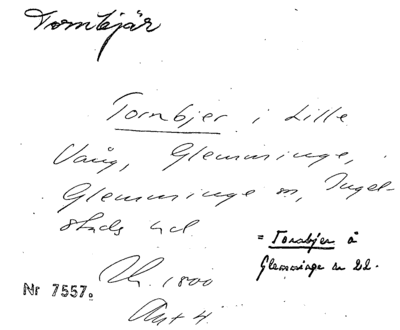 Tornbjär
Tornbjer i Lille
Vång, Glemminge,
Glemminge sn, Ingel-
stads hd
= Tornbjer å
Glemminge sn 22.
1800
Nr 7557.
Akt 4.